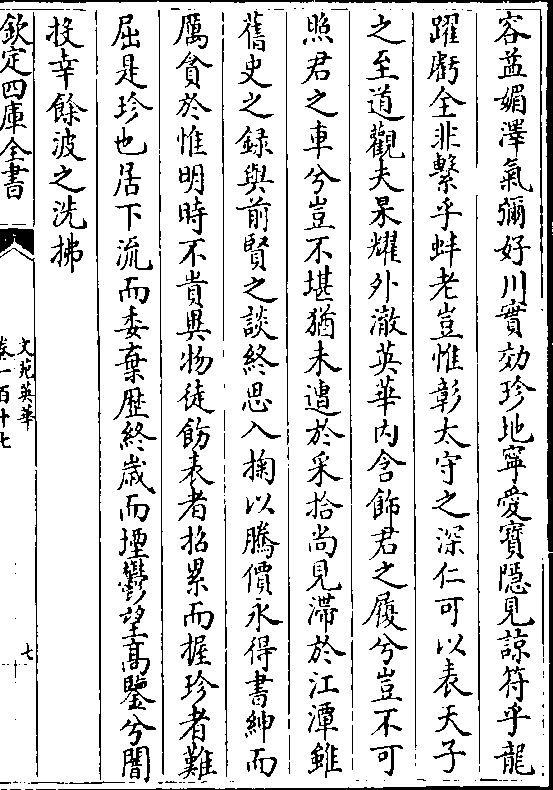 容益媚澤氣彌好川實効珍地寧愛寳隱見諒符乎龍
躍虧全非繫乎蚌老豈惟彰太守之深仁可以表天子
之至道觀夫杲耀外澈英華内含飾君之履兮豈不可
照君之車兮豈不堪猶未遭於采拾尚見滯於江潭雖
舊史之録與前賢之談終思入掬以騰價永得書紳而
厲貪於惟明時不貴異物徒飭表者招累而握珍者難
屈是珍也居下流而委棄歴終歳而堙鬱望髙鑒兮闇
投幸餘波之洗拂
欽定四庫全書
文苑英華
卷一百十七
七